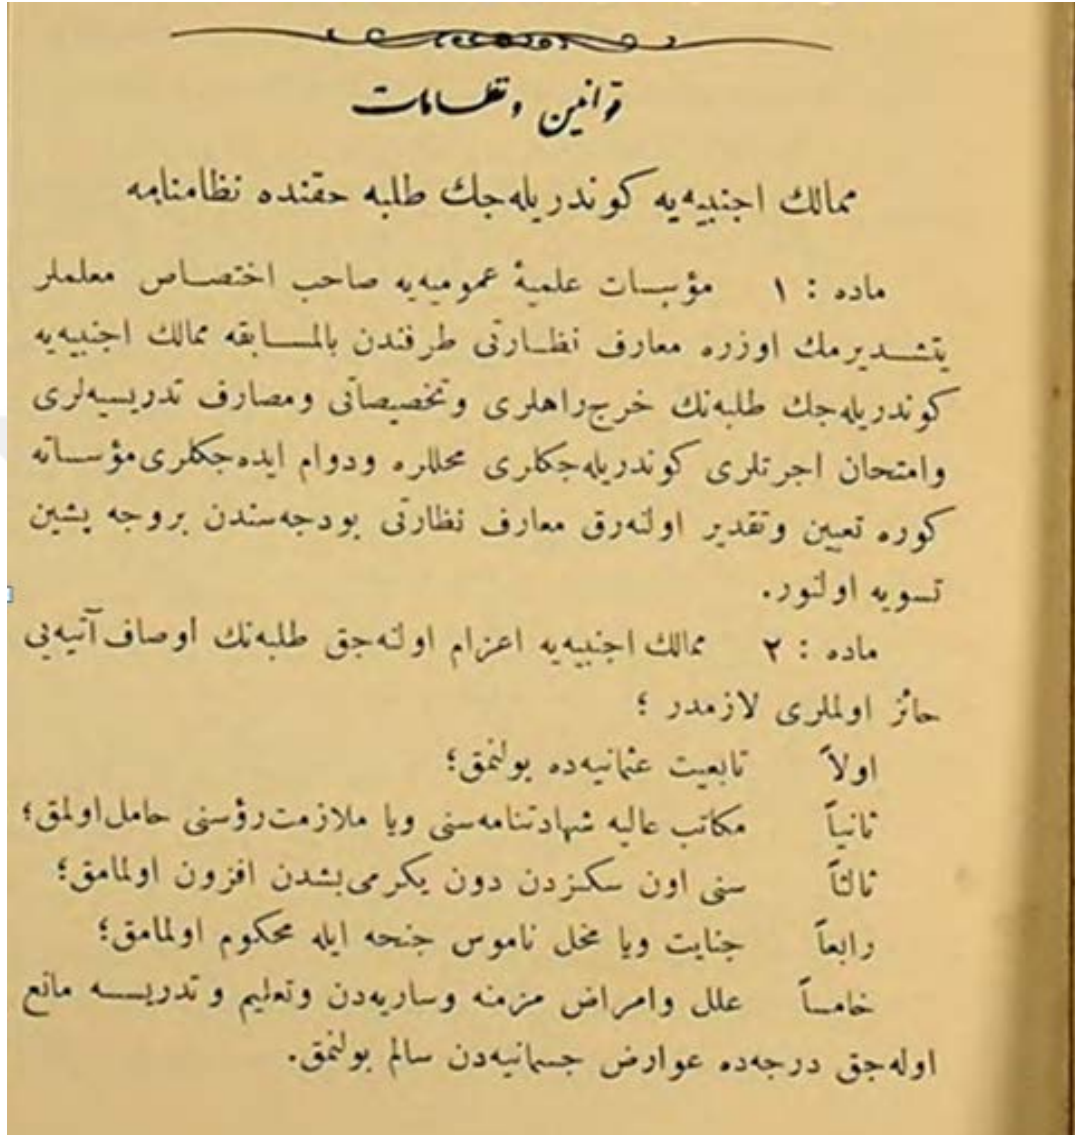 قوانین و نظامات
ممالك اجنبیه‌یه كوندریله‌جك طلبه حقنده نظامنامه
ماده : ١ مؤسسات علمیهٔ عمومیه‌یه صاحب اختصاص معلملر
یتشدیرمك اوزره معارف نظارتی طرفندن بالمسابقه ممالك اجنبیه‌یه
كوندریله‌جك طلبه‌نك خرج‌راهلری وتخصیصاتی ومصارف تدریسیه‌لری
وامتحان اجرتلری كوندریله‌جكلری محللره ودوام ایده‌جكلری مؤسساته
كوره تعیین وتقدیر اولنه‌رق معارف نظارتی بودجه‌سندن بروجه پشین
تسویه اولنور.
ماده : ٢ ممالك اجنبیه‌یه اعزام اولنه‌جق طلبه‌نك اوصاف آتیه‌یی
حائز اولملری لازمدر ؛
اولاً تابعیت عثمانیه‌ده بولنمق؛
ثانیاً مكاتب عالیه شهادتنامه‌سنی ویا ملازمت رؤسنی حامل اولمق؛
ثالثاً سنی اون سكزدن دون یكرمی بشدن افزون اولمامق؛
رابعاً جنایت ویا مخل ناموس جنحه ایله محكوم اولمامق؛
خامساً علل وامراض مزمنه وساریه‌دن وتعلیم و تدریسه مانع
اوله‌جق درجه‌ده عوارض جسمانیه‌دن سالم بولنمق.